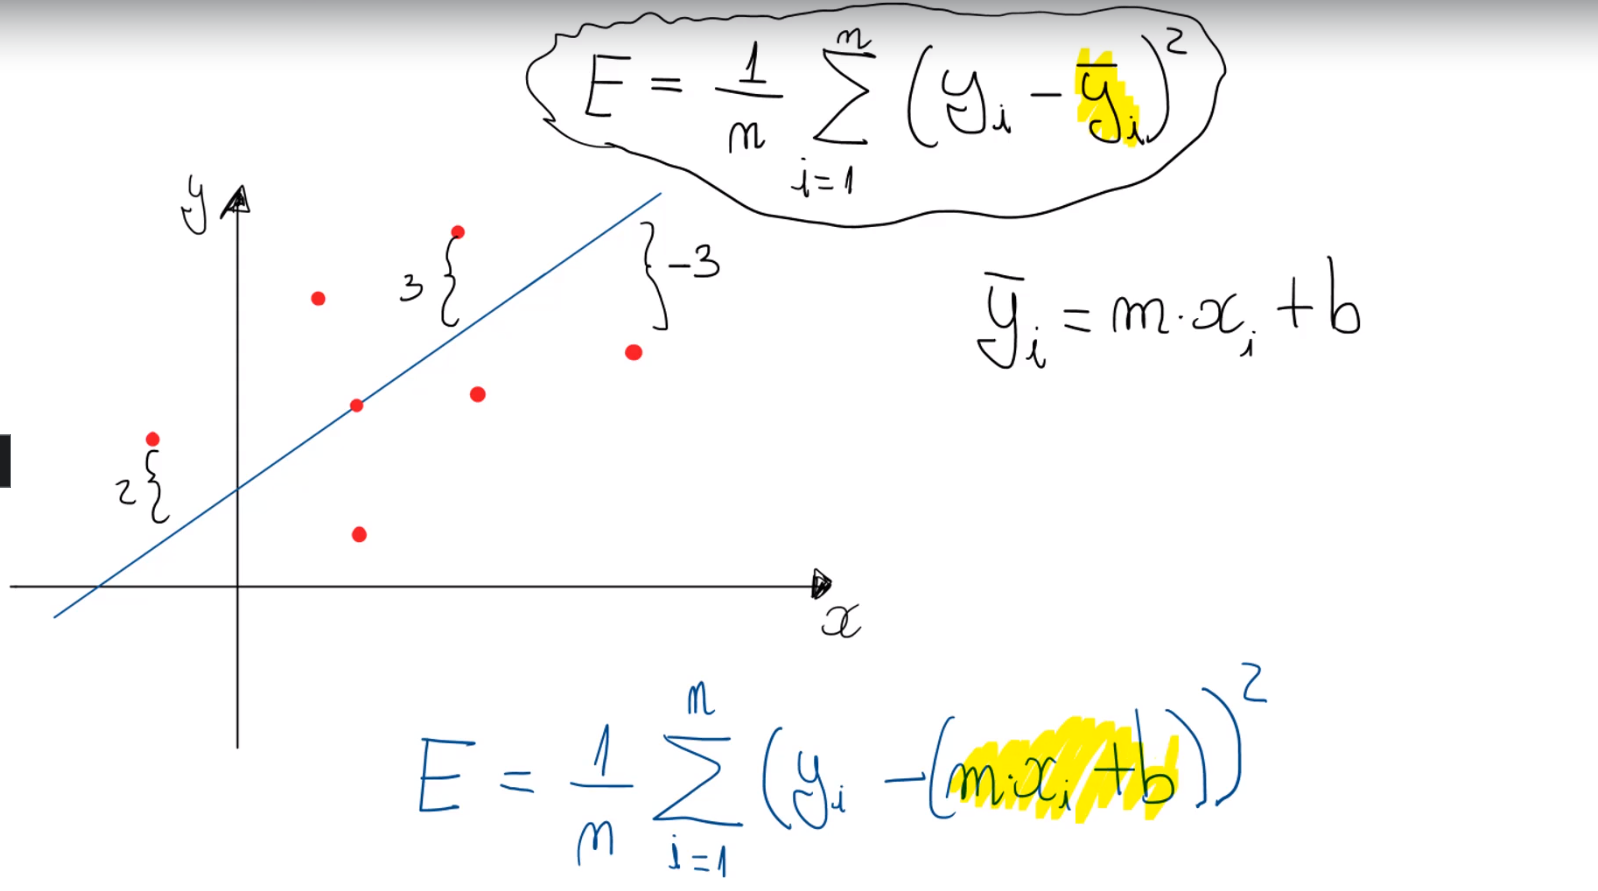 E = 1/n ∑ i=1 n (yᵢ - y̅ᵢ)²
y
3
-3
y̅ᵢ = m·xᵢ + b
2
x
E = 1/n ∑ i=1 n (yᵢ - (m·xᵢ + b))²